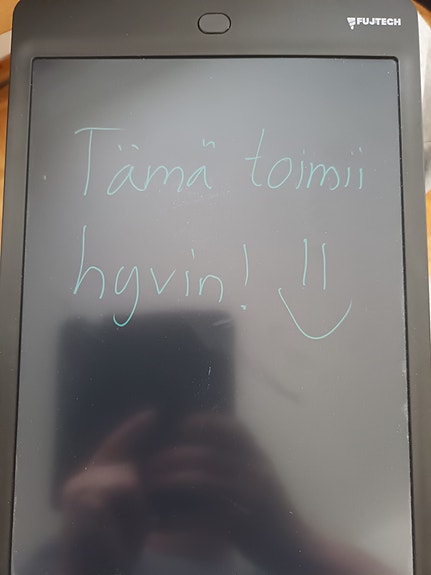 FUJTECH
Tämä toimii
hyvin!